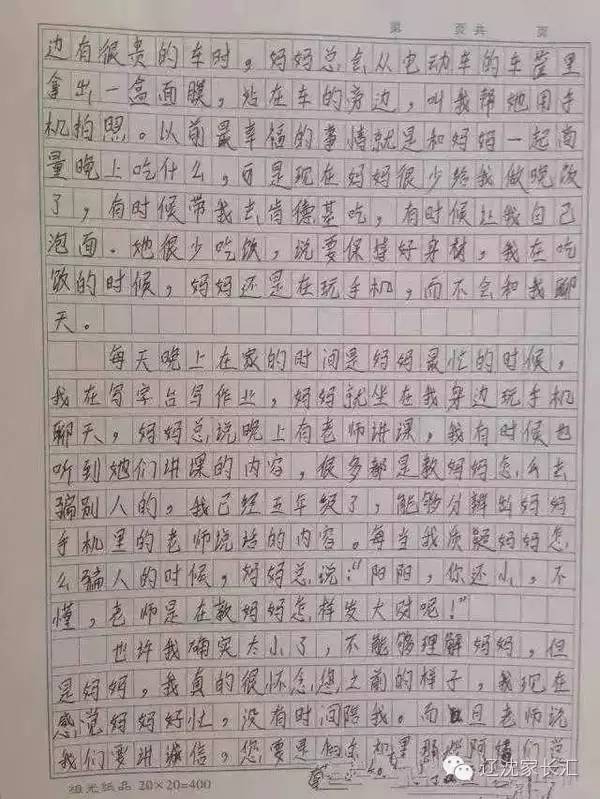 第 页共 页
边有很贵的车时,妈妈总会从电动车的车筐里
拿出一盒面膜,站在车的旁边,叫我帮她用手
机拍照。以前最幸福的事情就是和妈妈一起商
量晚上吃什么,可是现在妈妈很少给我做晚饭
了,有时候带我去肯德基吃,有时候让我自己
泡面.她很少吃饭,说要保持好身材,我在吃
饭的时候,妈妈还是在玩手机,而不会和我聊
天。
每天晚上在家的时间是妈妈最忙的时候,
我在写字台写作业,妈妈就坐在我身边玩手机
聊天,妈妈总说晚上有老师讲课,我有时候也
听到她们讲课的内容,很多都是教妈妈怎么去
骗别人的。我已经五年级了,能够分辨出妈妈
手机里的老师说话的内容。每当我质疑妈妈怎
么骗人的时候,妈妈总说:“阳阳,你还小,不
懂,老师是在教妈妈怎样发大财呢!”
也许我确实太小了,不能够理解妈妈,但
是妈妈,我真的很怀念您之前的样子,我现在
感觉妈妈好忙,没有时间陪我。而且老师说
我们要讲诚信,您要是机里那些阿姨们
祖光纸品 20×20=400
辽沈家长汇